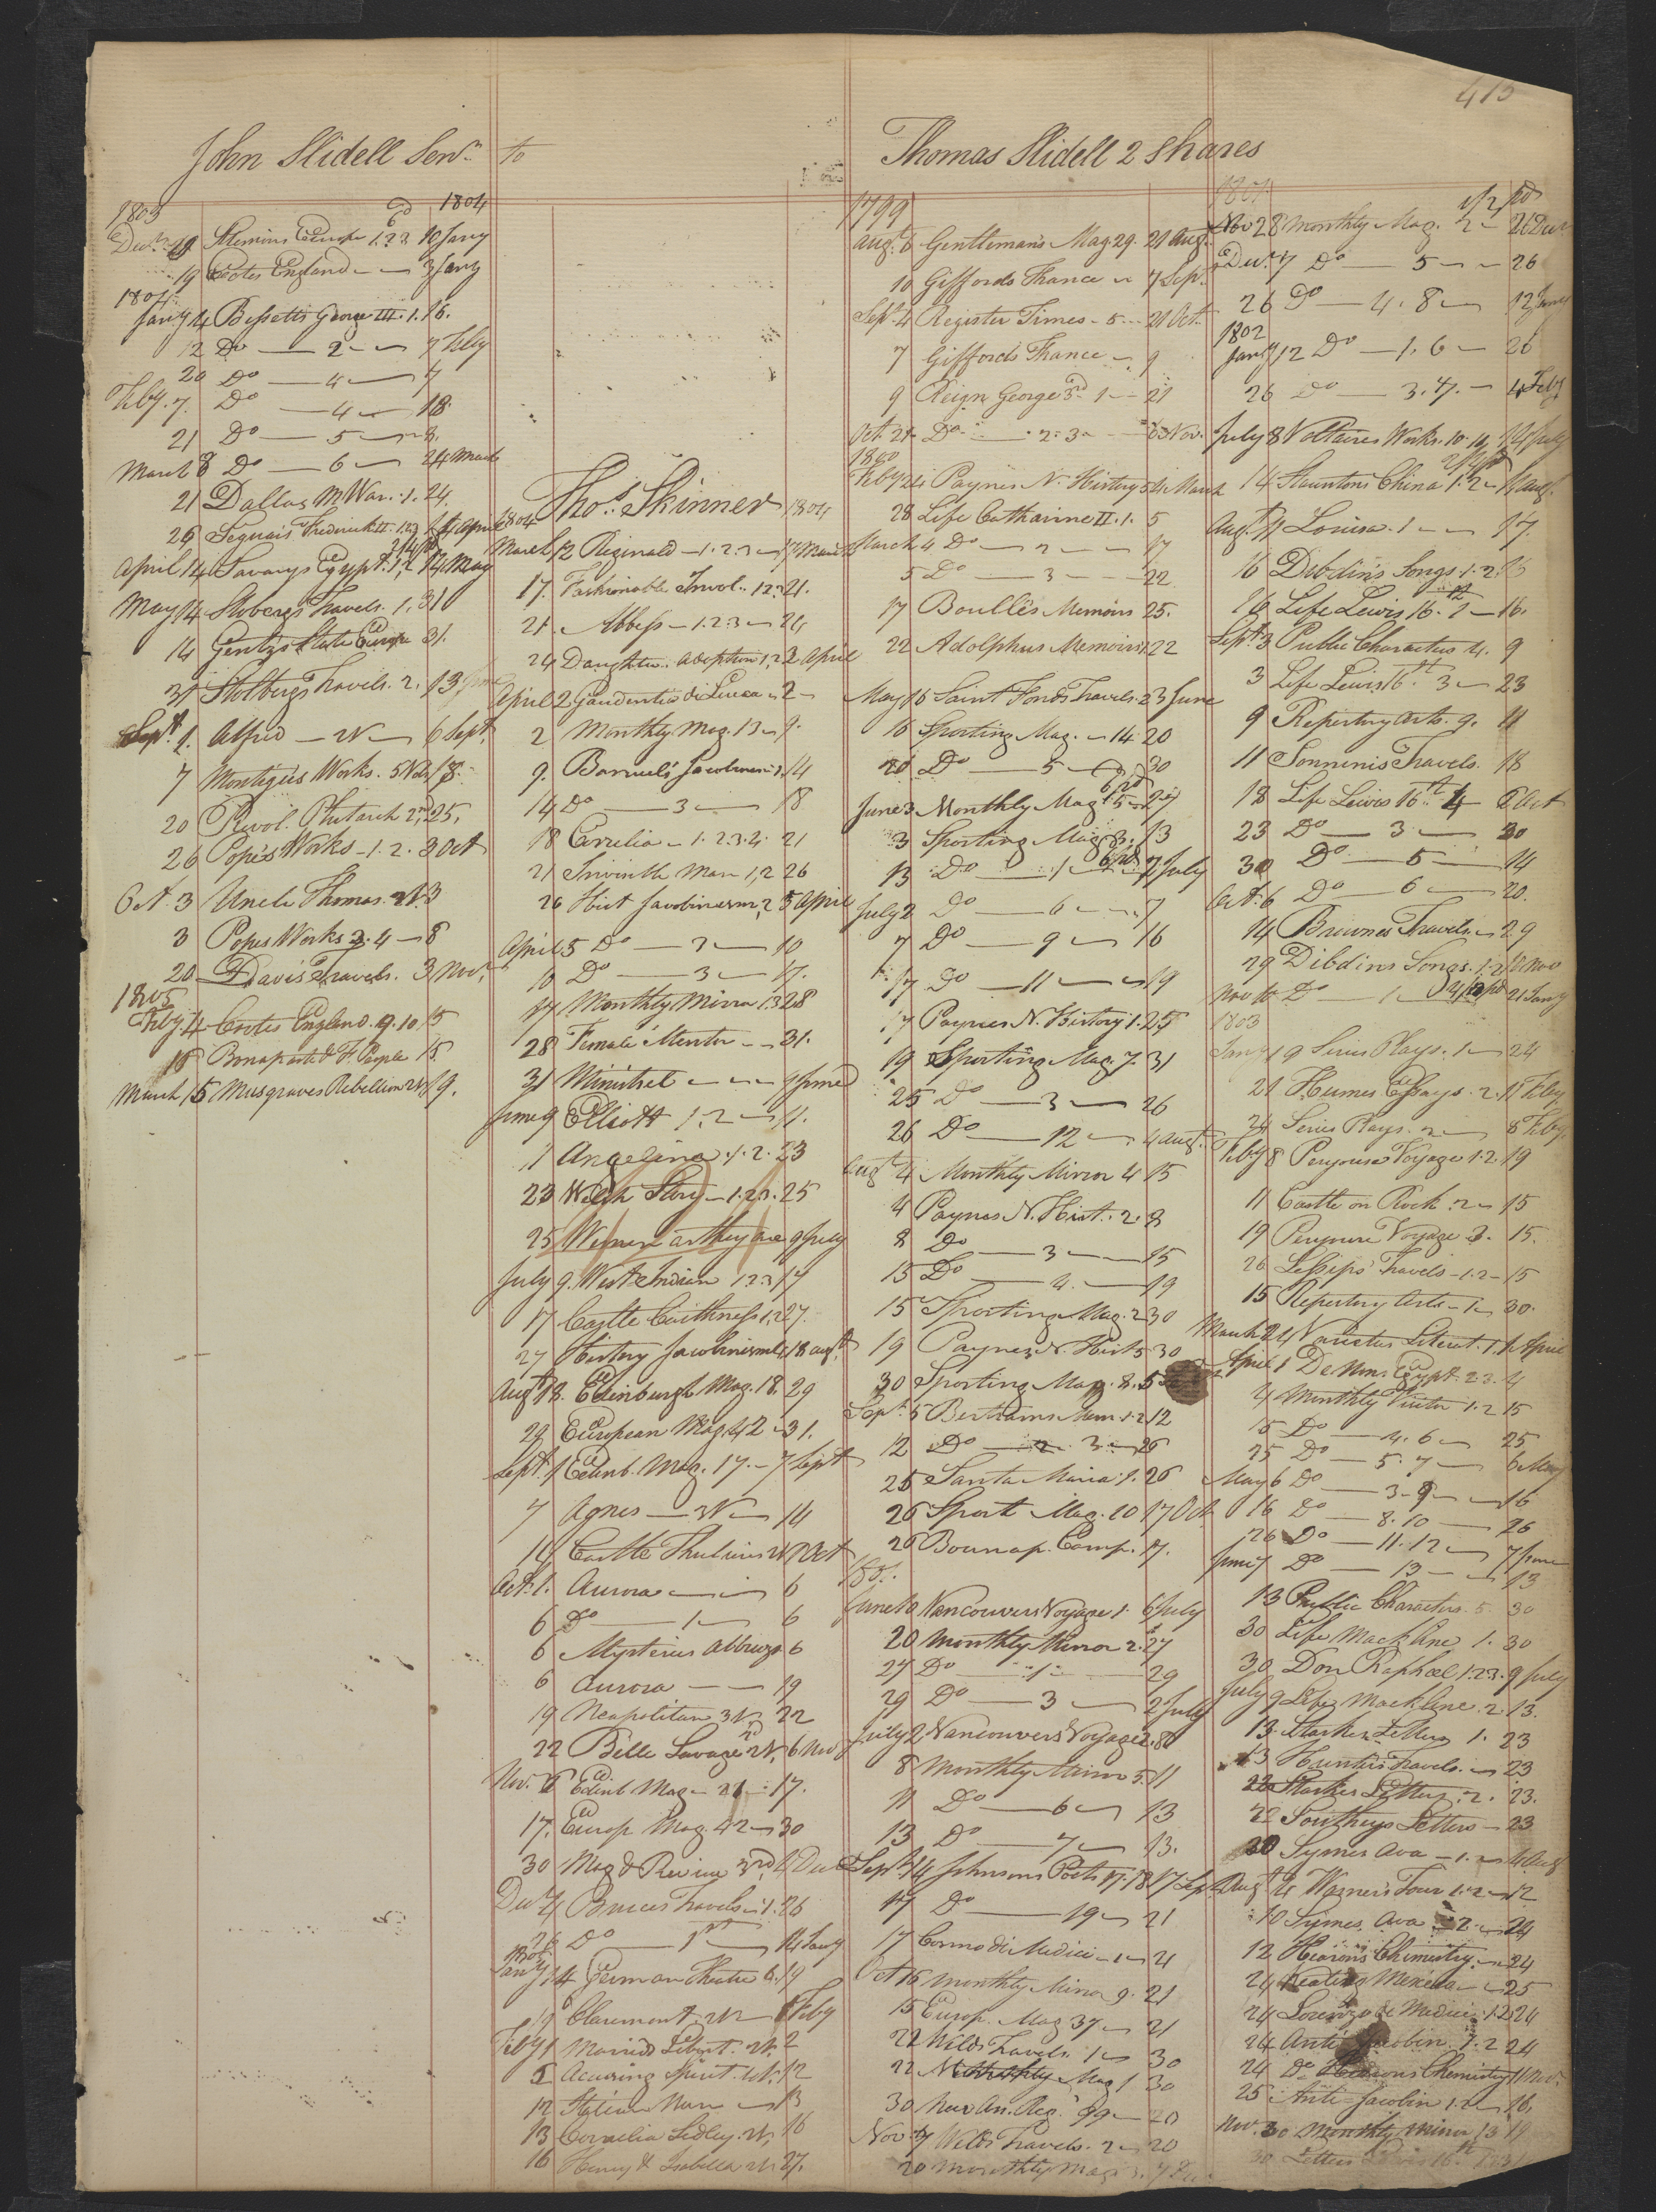 415
John Slidell Senr. to
1803 1804
Decr. 19 Stevens Europe 1.2.3. 10 Jany
19 Cootes England — — 3 Jany
1804
Jany 4 Bissetts George III. 1. 16.
12 Do — 2 — 7 Feby
20 Do — 4 — 7
Feby. 7. Do — 4 — 18.
21 Do — 5 — 8.
March 8 Do — 6 — 24 March
21 Dallas M War. 1. 24.
26 Segurs Frederick II. 1.2.3 14 April
April 14 Savarys Egypt. 1,2 14 May
May 14 Stobergs Travels. 1. 31
14 Gentzs State Europe 31.
31 Stolbergs Travels. 2. 13 June
Sept. 1. Alfred — 2V — 6 Sept.
7 Montagues Works. 5 Vols 18.
20 Revol. Plutarch 2nd, 25,
26 Popes Works — 1. 2. 3 Oct
Oct. 3 Uncle Thomas. 2V. 3
3 Popes Works 3. 4 — 8
20 Davis Travels. 3 Nov.
1805
Feby. 4 Cootes England. 9. 10. 15
18 Bonaparte & F. People 15.
March 15 Musgraves Rebellion 2V 19.
Thos. Skinner
1804 1804
March 12 Reginald — 1. 2. 3 — 17 March
17. Fashionable Invol. 1.2.3 21.
21. Abbess — 1. 2. 3 — 24
24 Daughter Adoption 1, 2 2 April
April 2 Gaudentio di Lucca — 2 —
2 Monthly Mag. 13 — 9.
9. Barruels Jacobinism 1. 14
14 Do — 3 — 18
18 Correlia — 1. 2. 3. 4. 21
21 Invisible Man 1, 2 26
26 Hist Jacobinism, 2 5 April
April 5 Do — 2 — 10
10 Do — 3 — 17.
17 Monthly Mirror 13 28
28 Female Mentor — — 31.
31 Minstrel — — — 9 June
June 9 Elliott 1. 2 — 11.
11 Angelina. 1. 2. 23
23 Welsh Story — 1. 2. 3. 25
25 Women as they are 9 July
July 9. West Indian 1 2 3 17
17 Castle Caithness 1,2 27.
27 History Jacobinism 4. 18 augt.
Aug 18. Edinburgh Mag. 18. 29
29 European Mag. 42 — 31.
Sept. 1 Edinb. Mag. 17. — 7 Sept
7 Agnes — 3V — 14
14 Castle 2V 1 Oct
Oct. 1. Aurora — — 6
6 Do — 1 — 6
6 Mysteries Abbruzo 6
6 Aurora — — 19
19 Neapolitan 3V 22
22 Belle Savage 2V. 6 Nov
Nov. 6 Edinb. Mag — 21 — 17.
17. Europ Mag. 42 — 30
30 Mag & Review 3rd, 4 Dec
Decr 4 Bruces Travels — 1. 26
26 Do — 1st — 14 Jany
Jany 14 German Theatre 6. 19
19 Claremont 2V — 1 Feby
Feby 1 Married Libert. 2V. 2
2 Accusing Spirit. 4V. 12
12 Italian Nun — 13
13 Cornelia Sedley. 2V, 16
16 Henry & Isabella 2V. 27.
Thomas Slidell 2 Shares
1799
Augt. 6 Gentlemans Mag 29. 21 Aug.
10 Giffords France — 7 Sept.
Sept. 4 Register Times — 5 — 21 Oct.
7 Giffords France — 9
9 Reign George 3rd. 1 — 21
Oct. 21 Do — 2. 3 — 6 Nov.
1800
Feby 24 Paynes N. History 5 4 March
28 Life Catharine II. 1. 5
March 4 Do — 2 — — 17
5 Do — 3 — — 22
17 Boulles Memoirs 25.
22 Adolphus Memoirs 1 22
May 15 Saint Fonds Travels. 23 June
16 Sporting Mag. — 14 20
20 Do — 5 — 30
June 3 Monthly Mag 5 — 27
3 Sporting Mag 3. 13
13 Do — 1 — 2 July
July 2 Do — 6 — 7
7 Do — 9 — 16
17 Do — 11 — 19
17 Paynes N. History 1. 25
19 Sporting Mag. 7. 31
25 Do — 3 — 26
26 Do — 12 — 4 augt.
Augt 4 Monthly Mirror 4 15
4 Paynes N. Hist. 2. 8
8 Do — 3 — 15
15 Do — 4. — 19
15 Sporting Mag. 2 30
19 Paynes N. Hist 5 30
30 Sporting Mag. 8. 5
Sept. 5 Bertrams Mem. 1. 2 12
12 Do — 2. 3 — 26
25 Santa Maria. 1. 26
26 Sport. Mag. 10 17 Oct
26 Bounap. Camp. 17.
1801.
June 10 Vancouvers Voyage 1. 6 July
20 Monthly Mirror 2. 27
27 Do — 1 — 29
29 Do — 3 — 2 July
July 2 Vancouvers Voyage 2. 8
8 Monthly Mirror 5. 11
11 Do — 6 — 13
13 Do — 7 — 13.
Sept. 14 Johnsons Poets 17. 18 17 Sept.
17 Do — 19 — 21
17 Cosmo di Medici — 1 — 21
Oct 16 Monthly Mirror 9. 21
15 Europ. Mag 37 — 21
22 Welds Travels 1 — 30
22 Monthly Mag 1 30
30 New An. Reg. 99 — 20
Nov. 7 Welds Travels. 2 — 20
20 Monthly Mag
1801
Nov 28 Monthly Mag. 2 — 21 Decr
Decr. 7 Do — 5 — 26
26 Do — 4. 8 — 12 Jany
1802
Jany 12 Do — 1. 6 — 26
26 Do — 3. 7. — 4 Feby
July 8 Voltaires Works. 10. 14 July
14 Stauntons China 1. 2 — 11 aug.
Augt. 11 Louisa. 1 — — 17.
16 Dibdins Songs. 1. 2.
16 Life Lewis 16. 1 — 16.
Sept. 3 Public Characters 4. 9
3 Life Lewis 16th 3 — 23
9 Repertory Arts. 9. 11
11 Sonninis Travels. 18
18 Life Lewis 16th 4 6 Oct
23 Do — 3 — 30
30 Do — 5 — 14
Oct. 6 Do — 6 — 20.
14 Brownes Travels. — 29
29 Dibdins Songs. 1. 2 10 Nov
Nov 10 Do — 1 — 21 Jany
1803
Jany 19 Series Plays. 1 — 24
21 Humes Essays. 2. 11 Feby
24 Series Plays. 2 — 8 Feby.
Feby 8 Perouse Voyage 1. 2. 19
11 Castle on Rock. 2 — 15
19 Perouse Voyage 3. 15.
26 Lesseps Travels — 1. 2 — 15
15 Repertory Arts — 1 — 30.
March 24 Varieties Literat. 1. 1 April
April 1 Denons Egypt. 2 3. 4
4 Monthly Visitor 1. 2 15
15 Do — 4. 6 — 25
25 Do — 5. 7 — 6 May
May 6 Do — 3. 9 — 16
16 Do — 8. 10 — 26
26 Do — 11. 12 — 7 June
June 7 Do — 13 — 13
13 Public Characters 5. 30
30 Life Macklane 1. 30
30 Don Raphael 1. 2 3. 9 July
July 9 Life Macklane. 2. 13.
13. Starkes Letters 1. 23
13 Hunters Travels. — 23
22 Starkes Letters. 2. 23.
22 Southeys Letters — 23
30 Symes Ava — 1. — 4 Aug
Augt 4 Warners Tour 1. 2 — 12
10 Symes Ava — 2. — 24
12 Hearons Chemistry. — 24
24 Keating Mexico — 25
24 Lorenzo de Medici. 1. 2 24
24 Anti Jacobin. 1. 2 24
24 Do Hearons Chemistry 11 Nov.
25 Anti Jacobin 1. 2 — 16.
Nov. 30 Monthly Mirror 13 19
30 Letters Lewis 16th